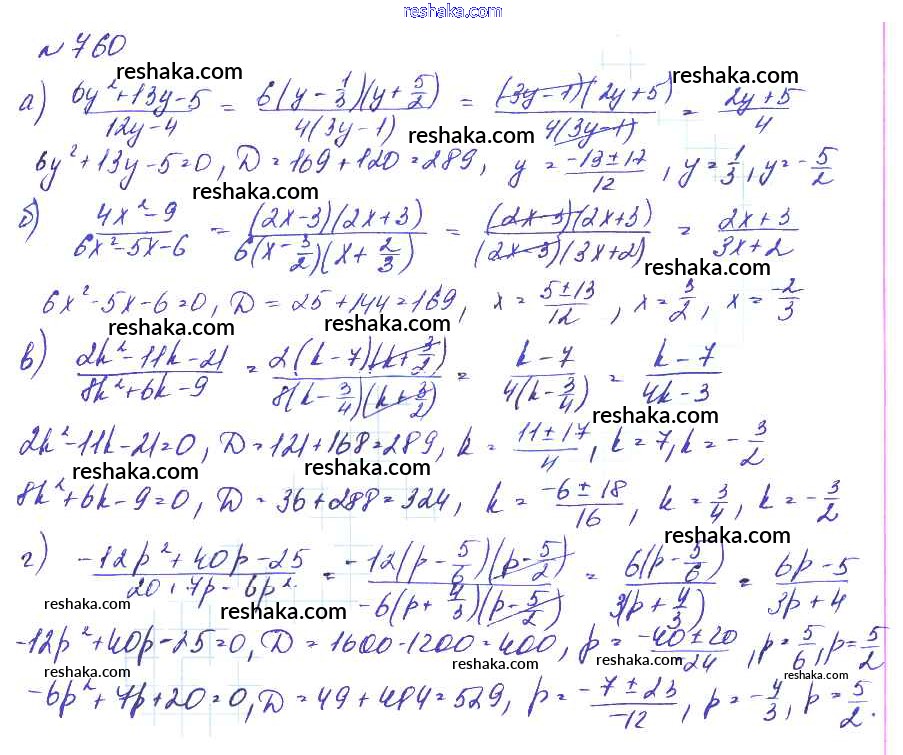 reshaka.com
№ 760
reshaka.com reshaka.com reshaka.com reshaka.com
а) (6y²+13y-5)/(12y-4) = 6(y-1/3)(y+5/2)/4(3y-1) = (3y-1)(2y+5)/4(3y-1) = (2y+5)/4
reshaka.com
6y²+13y-5=0, D=169+120=289, y = (-13±17)/12, y=1/3, y=-5/2
reshaka.com
б) (4x²-9)/(6x²-5x-6) = (2x-3)(2x+3)/6(x-3/2)(x+2/3) = (2x-3)(2x+3)/(2x-3)(3x+2) = (2x+3)/(3x+2)
reshaka.com
6x²-5x-6=0, D=25+144=169, x = (5±13)/12, x=3/2, x=-2/3
reshaka.com reshaka.com
в) (2k²-11k-21)/(8k²+6k-9) = 2(k-7)(k+3/2)/8(k-3/4)(k+3/2) = (k-7)/4(k-3/4) = (k-7)/(4k-3)
reshaka.com
2k²-11k-21=0, D=121+168=289, k = (11±17)/4, k=7, k=-3/2
reshaka.com reshaka.com
8k²+6k-9=0, D=36+288=324, k = (-6±18)/16, k=3/4, k=-3/2
reshaka.com
г) (-12p²+40p-25)/(20+7p-6p²) = -12(p-5/6)(p-5/2)/-6(p+4/3)(p-5/2) = 6(p-5/6)/3(p+4/3) = (6p-5)/(3p+4)
reshaka.com reshaka.com reshaka.com
-12p²+40p-25=0, D=1600-1200=400, p = (-40±20)/-24, p=5/6, p=5/2
reshaka.com reshaka.com reshaka.com reshaka.com
-6p²+7p+20=0, D=49+484=529, p = (-7±23)/-12, p=-4/3, p=5/2.